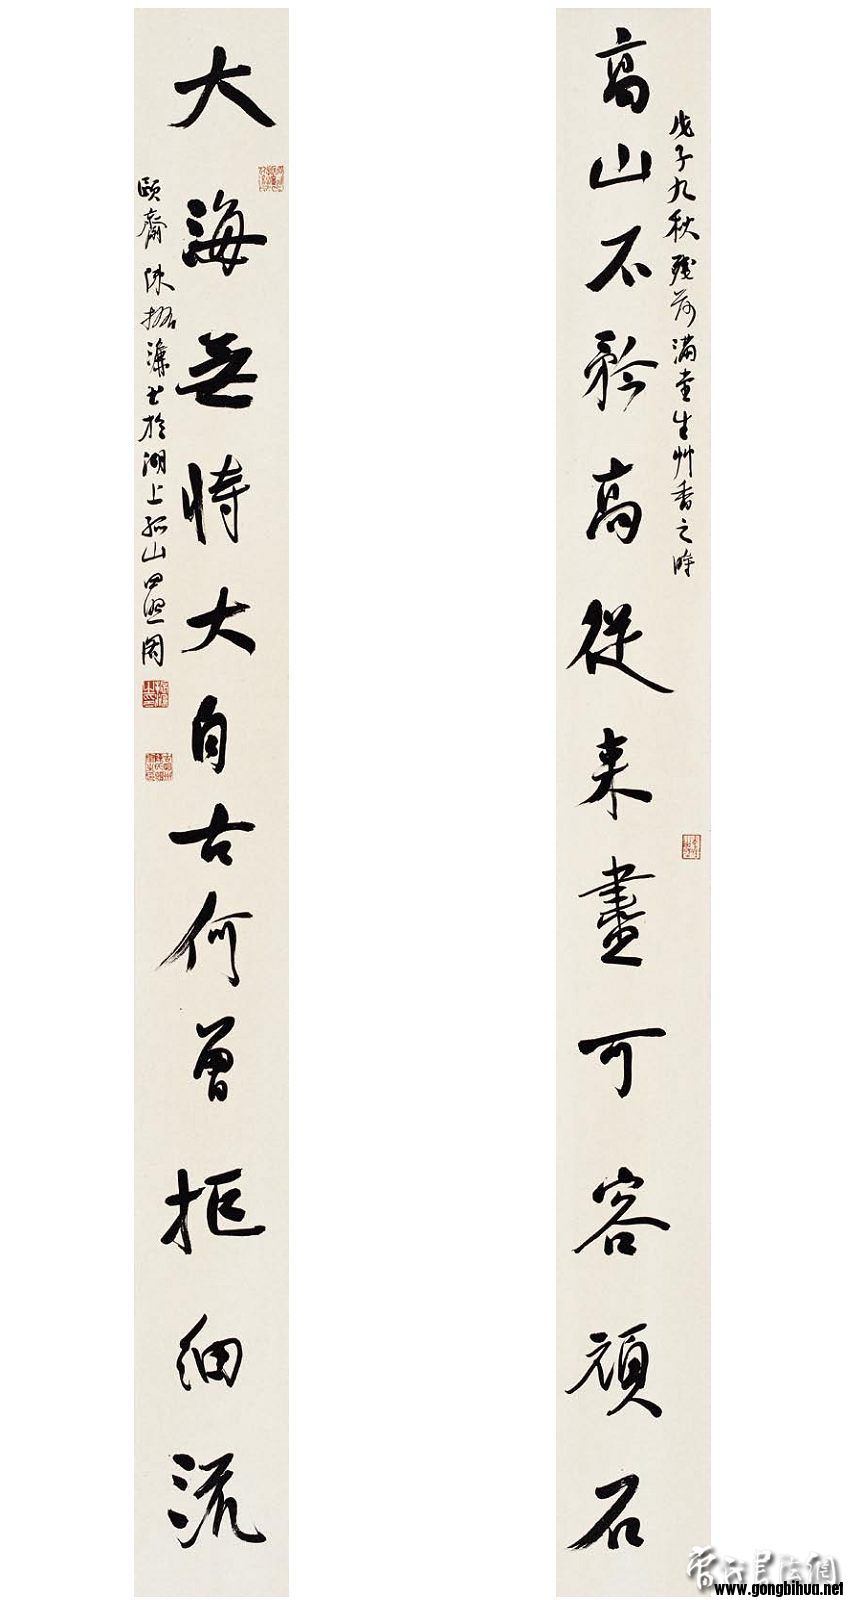 高山不矜高從来盡可容頑石
戊子九秋殘荷滿塘生艸香之時
大海無恃大自古何曾拒細流
頤齋陳振濂書於湖上孤山四照閣
www.gongbihua.net